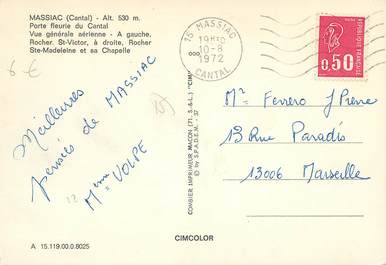 MASSIAC (Cantal) - Alt. 530 m.
Porte fleurie du Cantal
Vue générale aérienne - A gauche,
Rocher St-Victor, à droite, Rocher
Ste-Madeleine et sa Chapelle
6 €
Meilleures
pensées de MASSIAC
Mme VOLPE
15
A 15.119.00.0.8025
COMBIER IMPRIMEUR MACON (71. S.-&-L.) "CIM"
© by S.P.A.D.E.M.
CIMCOLOR
15 MASSIAC
10-8
1972
CANTAL
0,50
REPUBLIQUE FRANÇAISE
Mr Ferrero J Pierre
13 Rue Paradis
13006 Marseille